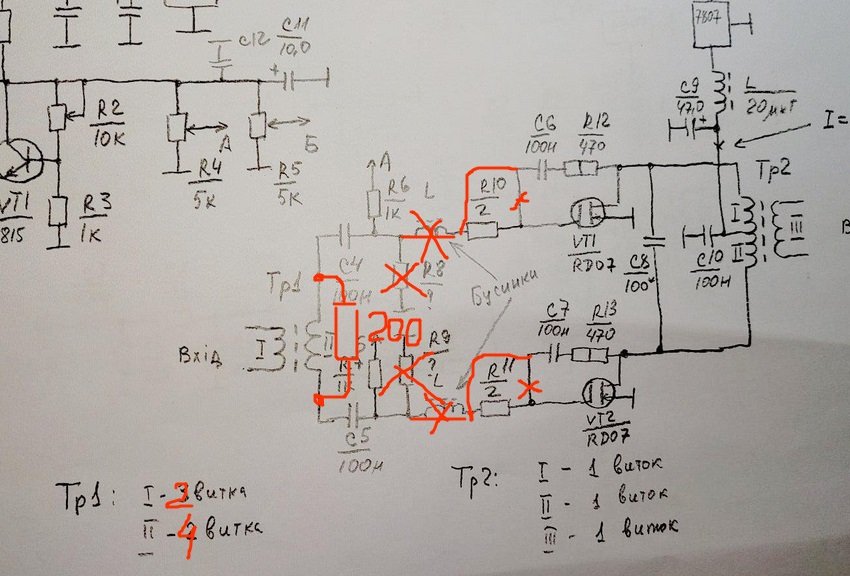 7807
C12
C11
10,0
+
C9
47,0
+
L
20мкГ
I=
R2
10К
R4
5К
А
R5
5К
Б
VT1
815
R3
1К
А
R6
1К
L
R10
2
C6
100н
R12
470
VT1
RD07
C8
100
C10
100н
Тр2
I
II
III
C4
100н
R8
?
Бусинки
Тр1
200
Вхід
I
II
R9
?
L
R11
2
C7
100н
R13
470
VT2
RD07
C5
100н
Тр1:
I - 3 витка
II - 4 витка
Тр2:
I - 1 виток
II - 1 виток
III - 1 виток